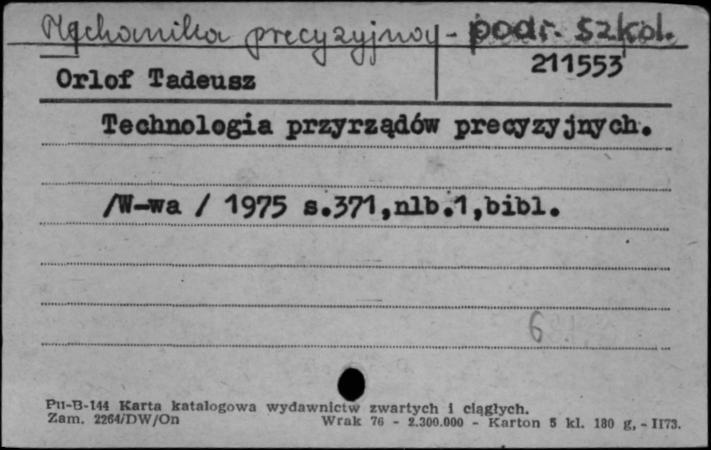 Mechanika precyzyjna - podr. szkol.
211553
Orlof Tadeusz
Technologia przyrządów precyzyjnych.
/W-wa / 1975 s.371,nlb.1,bibl.
6
Pu-B-144 Karta katalogowa wydawnictw zwartych i ciągłych.
Zam. 2264/DW/On Wrak 76 - 2.300.000 - Karton 5 kl. 180 g, - II73.